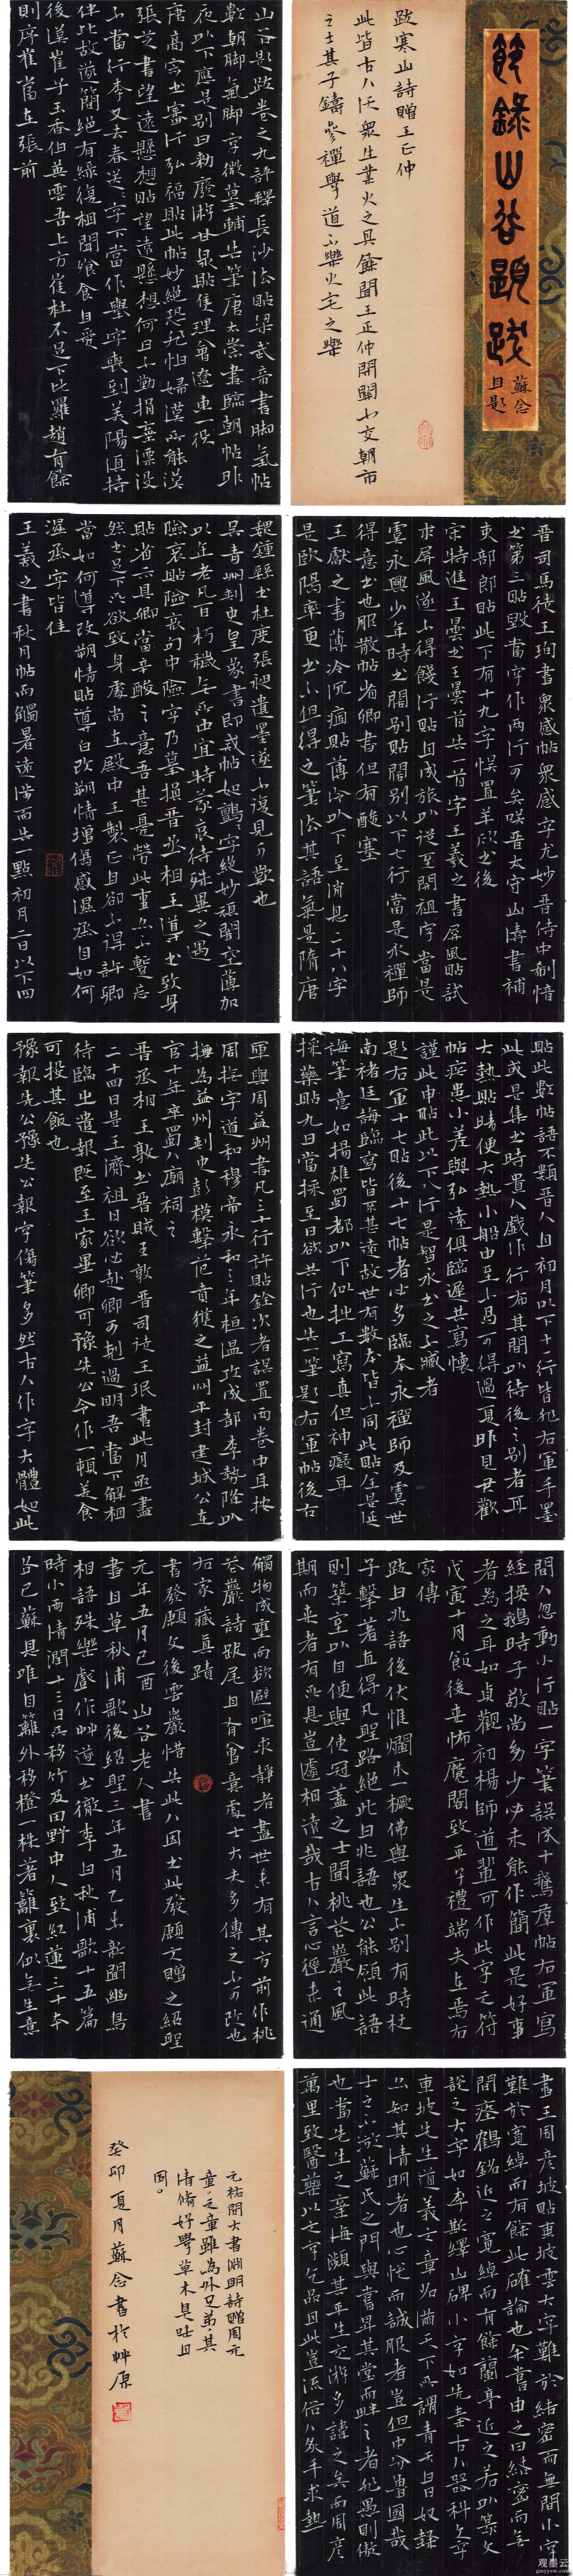 節錄山谷題跋
蘇念
自題
跋寒山詩贈王正仲
此皆古人沃眾生業火之具餘聞王正仲閉關不交朝市
之士其子鑄參禪學道不樂火宅之樂
山谷題跋卷之九評釋長沙法帖梁武帝書腳氣帖
數朝腳氣字微摹輔失筆唐太常書臨朝帖昨
卮以下應是別日勅廢游甘泉帖隻理窗遼東一役
唐高宗書審行弘福帖此帖妙絕恐非怕婦漢所能江
張芝書望遠懸想帖望遠懸想何日不勤捐棄漂沒
不當行李又去春送字下當作舉字喪到美陽須待
伴比故遂簡絕有緣復相聞飧食自愛
後漢崔子玉香但英雲吾上方崔杜不足下比羅趙有餘
則序崔當在張前
晉司馬徒王珣書眾感帖眾感字尤妙晉侍中郗愔
書第三帖毀當字作兩行可矣哂晉太守山濤書補
吏部郎帖此下有十九字悮置羊欣之後
宗特進王曇書王曇首共一首字王羲之書屏風帖試
求屏風遂不得餞行帖且成旅以從至開祖字當是
虞永興少年時書闊別帖闊別以下七行當是永禪師
得意書也服散帖省卿書但有酸塞
王獻之書薄冷沉痼帖薄冷以下至消息二十八字
是歐陽率更書不但得之筆法其語氣是隋唐
魏鍾繇書杜度張芝遺墨遂不復見可歎也
吳青州刺史皇象書即戒帖如鸘字縱妙頑闇空薄加
以年老凡百朽穢無所由宜特蒙哀待殊異之遇
險衰帖險哀句中險字乃摹損晉丞相王導書致身
帖省示具卿當辛酸之意吾甚憂勞此事亦不暫忘
然書足下所欲致身處尚在殿中王製正自卻不得許卿
當如何導改朔情帖導白改朔情增傷感濕蒸自如何
濕蒸字皆佳
王羲之書秋月帖而觸暑遠涉而失一點初月二日以下四
帖此數帖語不類晉人且初月以下十行皆非右軍手墨
此或是集書時貴人戲作行布其間以待後之別者耳
大熱帖晴便大熱小船中至不易可得過夏昨見君歡
帖疾患小差與弘遠俱臨遲共寫懷
謹此申帖此以下八行是智永書之不臧者
是右軍十七帖後十七帖者必多臨本永禪師及虞世
南褚廷誨臨寫皆不甚遠故世有數本皆不同此帖全是延
誨筆意如揚雄蜀都以下似拙工寫真但神癡耳
採藥帖九日當採至日欲共行也共一筆是右軍帖後古
軍與周益州書凡三十行許帖銓次者誤置兩卷中耳按
周撫字道和穆帝永和三年桓溫攻成都李勢降以
撫為益州刺史彭模擊范賁獲之益州平封建城公在
官十年卒蜀人廟祠之
晉丞相王敦書晉賊王敦晉司徒王珉書此月亟盡
二十四日是王濟祖日欲必赴卿可剋過明吾當下解相
待臨書遣報既至王家畢卿可豫先公今作一頓美食
可投其飯也
豫報先公豫先公報字傷筆多然古人作字大體如此
問人忽動小行帖一字筆誤成十鵞群帖右軍寫
經換鵝時子敬尚多少必未能作簡此是好事
者為之耳如貞觀初楊師道輩可作此字之符
戊寅十月飯後坐怖魔閣致平子禮端夫上焉石
家傳
跋曰兆語後伏惟爛木一橛佛與眾生不別有時杖
子擊著直得凡聖路絕此日兆語也公能領此語
則築室以自便與使冠蓋之士聞桃花巖之風
期而來者有所具豈虛相遠哉古人言心徑未通
觸物成壅而欲避喧求靜者盡世未有其方前作桃
花巖詩跋尾自有會意處士大夫多傳之不可改也
石家藏真蹟
書發願文後雲巖惜共此人因書此發願文贈之紹聖
元年五月己酉山谷老人書
書自草秋浦歌後紹聖三年五月乙未新開幽鳥
相語殊樂戲作艸遂書徹李白秋浦歌十五篇
時小雨清潤十三日所移竹及田野中人致紅蓮三十本
各已蘇息唯自籬外移橙一株著籬裏似無生意
書王周彥坡帖東坡雲大字難於結密而無間小字
難於寬綽而有餘此確論也余嘗申之曰結密而無
間瘞鶴銘近之寬綽而有餘蘭亭近之若以篆文
說之大字如李斯繹山碑小字如先秦古人器科斗字
東坡先生道義文章名滿天下所謂青天白日奴隸
亦知其清明者也心悅而誠服者豈但中分魯國哉
士之不游蘇氏之門與嘗昇其堂而畔之者非愚則傲
也當先生之棄海瀕其平生交游多諱之矣而周彥
萬里致醫藥以文字乞品目此豈流俗人炙手求熱
元祐間大書淵明詩贈周元
章元章雖為外兄弟其
清脩好學草木臭味自
同。
癸卯夏月蘇念書於艸原
观墨云
gmyysw.com